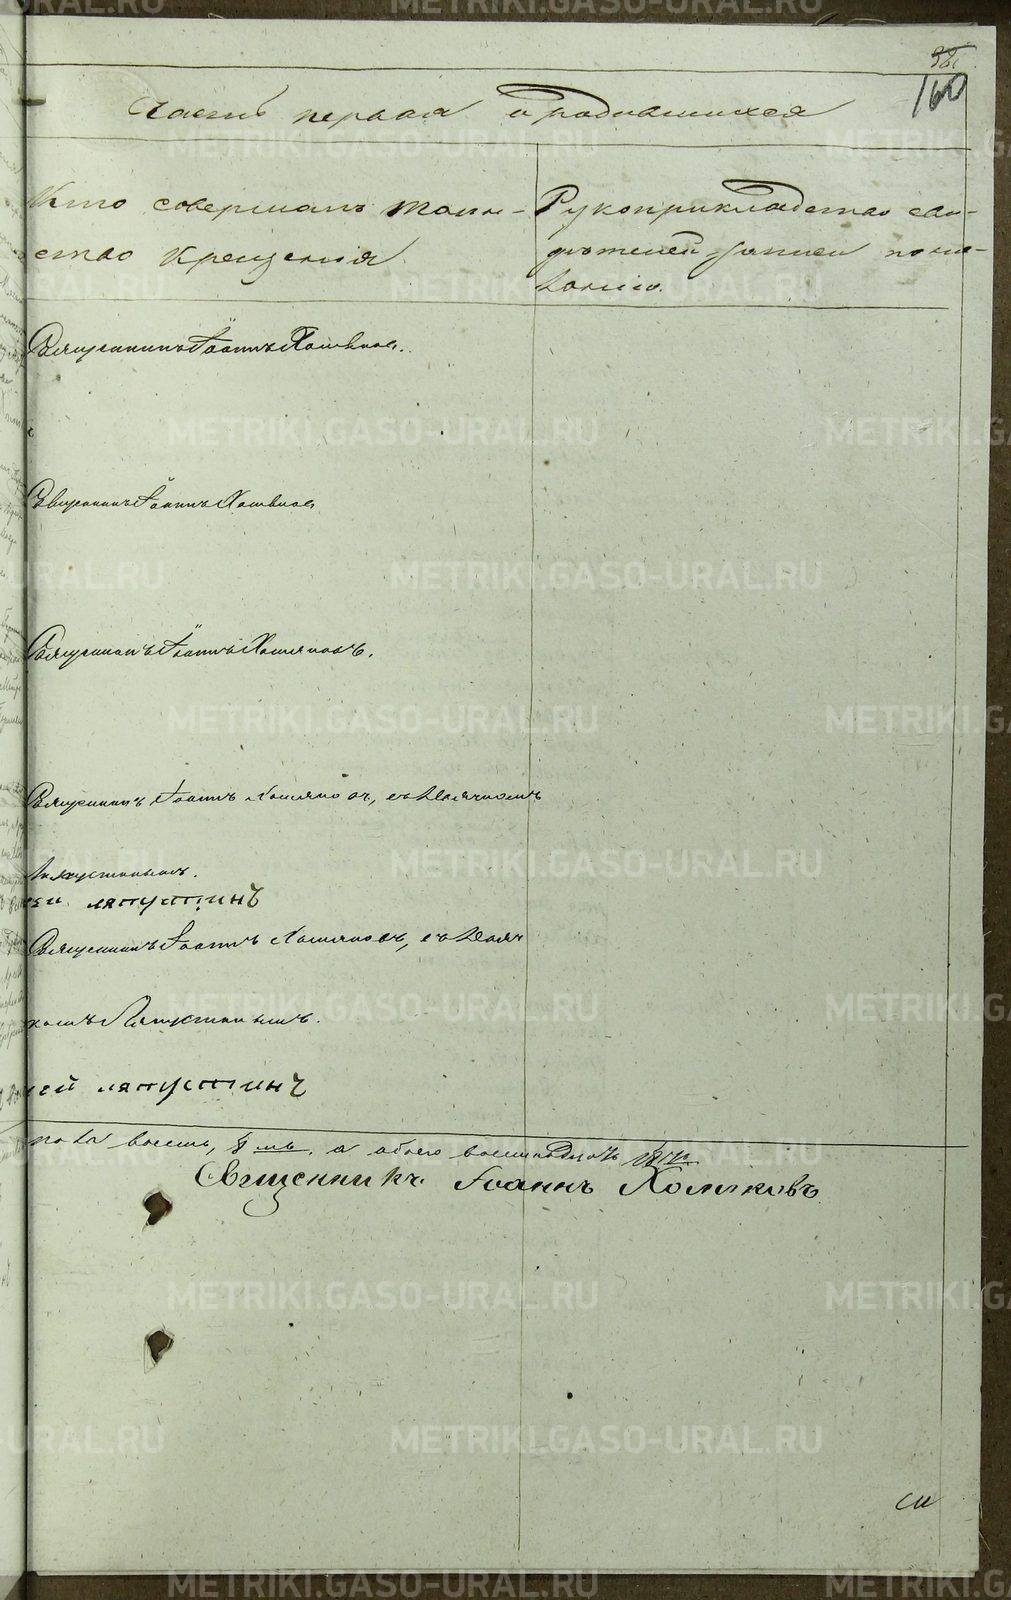 160
Часть первая о родившихся
Кто совершалъ Таин-
ство крещенія
Рукоприкладство сви-
дѣтелей записи по же-
ланію.
Священникъ Іоаннъ Хомяковъ.
Священникъ Іоаннъ Хомяковъ
Священникъ Іоаннъ Хомяковъ.
Священникъ Іоаннъ Хомяковъ, съ Дьячкомъ
Ляпустинымъ.
ляпустинъ
Священникъ Іоаннъ Хомяковъ, съ Дьяч
комъ Ляпустинымъ.
ей ляпустинъ
пола восемь, 8 мь, а обоего
Священникъ Іоаннъ Хомяковъ
METRIKI.GASO-URAL.RU